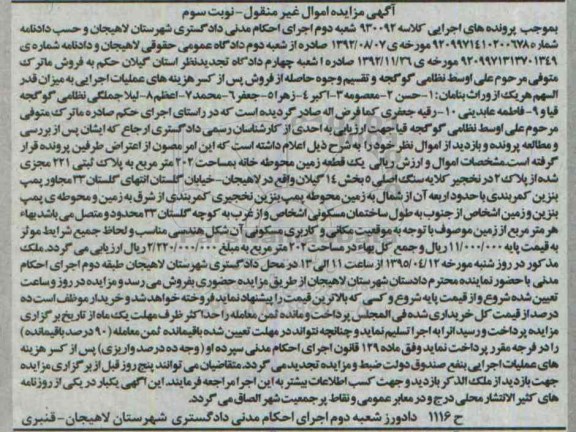 آگهی مزایده اموال غیر منقول - نوبت سوم
بموجب پرونده های اجرایی کلاسه ۹۳۰۰۹۲ شعبه دوم اجرای احکام مدنی دادگستری شهرستان لاهیجان و حسب دادنامه
شماره ۹۲۰۹۹۷۱۴۱۰۲۰۰۶۷۸ مورخه ی ۱۳۹۲/۰۸/۰۷ صادره از شعبه دوم دادگاه عمومی حقوقی لاهیجان و دادنامه شماره ی
۹۲۰۹۹۷۱۳۱۳۷۰۱۳۴۹ مورخه ی ۱۳۹۲/۱۱/۲۶ صادره از شعبه چهارم دادگاه تجدیدنظر استان گیلان حکم به فروش ماترک
متوفی مرحوم علی اوسط نظامی گوگجه و تقسیم وجوه حاصله از فروش پس از کسر هزینه های عملیات اجرایی به میزان قدر
السهم هریک از وراث بنامان: ۱- حسن ۲- معصومه ۳- اکبر ۴- زهرا ۵- جعفر ۶- محمد ۷- اعظم ۸- لیلا جملگی نظامی گوگجه
قیا و ۹- فاطمه عابدینی ۱۰- رقیه جعفری کما فرض اله صادر گردیده است که در راستای اجرای حکم صادره ماترک متوفی
مرحوم علی اوسط نظامی گوگجه قیا جهت ارزیابی به احدی از کارشناسان رسمی دادگستری ارجاع که ایشان پس از بررسی
و مطالعه پرونده و بازدید از اموال نظر خود را به شرح ذیل اعلام داشته است که این امر مصون از اعتراض طرفین پرونده قرار
گرفته است. مشخصات اموال و ارزش ریالی یک قطعه زمین محوطه خانه بمساحت ۲۰۲ متر مربع به پلاک ثبتی ۲۲۱ مجزی
شده از پلاک ۲ در نخجیر کلایه سنگ اصلی ۵ بخش ۱۴ گیلان واقع در لاهیجان - خیابان گلستان انتهای گلستان ۳۳ مجاور پمپ
بنزین کمربندی با حدود اربعه آن از شمال به زمین محوطه پمپ بنزین نخجیری کمربندی از شرق به زمین و محوطه ی پمپ
بنزین و زمین اشخاص از جنوب به طول ساختمان مسکونی اشخاص و از غرب به کوچه گلستان ۳۳ محدود و متصل می باشد بهاء
هر متر مربع از زمین موصوف با توجه به موقعیت مکانی و کاربری مسکونی آن شکل هندسی مناسب و لحاظ جمیع شرایط موثر
به قیمت پایه ۱۱/۰۰۰/۰۰۰ ریال و جمع کل بهاء در مساحت ۲۰۲ متر مربع به مبلغ ۲/۲۲۰/۰۰۰/۰۰۰ ریال ارزیابی می گردد. ملک
مذکور در روز شنبه مورخه ۱۳۹۵/۰۴/۱۲ از ساعت ۱۱ الی ۱۳ در محل دادگستری شهرستان لاهیجان طبقه دوم اجرای احکام
مدنی با حضور نماینده محترم دادستان شهرستان لاهیجان از طریق مزایده حضوری بفروش می رسد و مزایده در روز و ساعت
تعیین شده شروع و از قیمت پایه شروع و کسی که بالاترین قیمت را پیشنهاد نماید فروخته خواهد شد و خریدار موظف است ده
درصد از قیمت کل خریداری شده فی المجلس پرداخت و مانده ثمن معامله را حداکثر ظرف مهلت یک ماه از تاریخ برگزاری
مزایده پرداخت و رسید آنرا به اجرا تسلیم نماید و چنانچه نتواند در مهلت تعیین شده باقیمانده ثمن معامله (۹۰ درصد باقیمانده)
را در فرجه مقرر پرداخت نماید وفق ماده ۱۲۹ قانون اجرای احکام مدنی سپرده او (وجه ده درصد واریزی) پس از کسر هزینه
های عملیات اجرایی بنفع صندوق دولت ضبط و مزایده تجدید می گردد. متقاضیان می توانند پنج روز قبل از برگزاری مزایده
جهت بازدید از ملک الذکر بازدید و جهت کسب اطلاعات بیشتر به این اجرا مراجعه فرمایند. این آگهی یکبار در یکی از روزنامه
های کثیر الانتشار محلی درج و در معابر عمومی و نقاط پر جمعیت شهر الصاق می گردد.
ح ۱۱۱۶ دادورز شعبه دوم اجرای احکام مدنی دادگستری شهرستان لاهیجان - قنبری